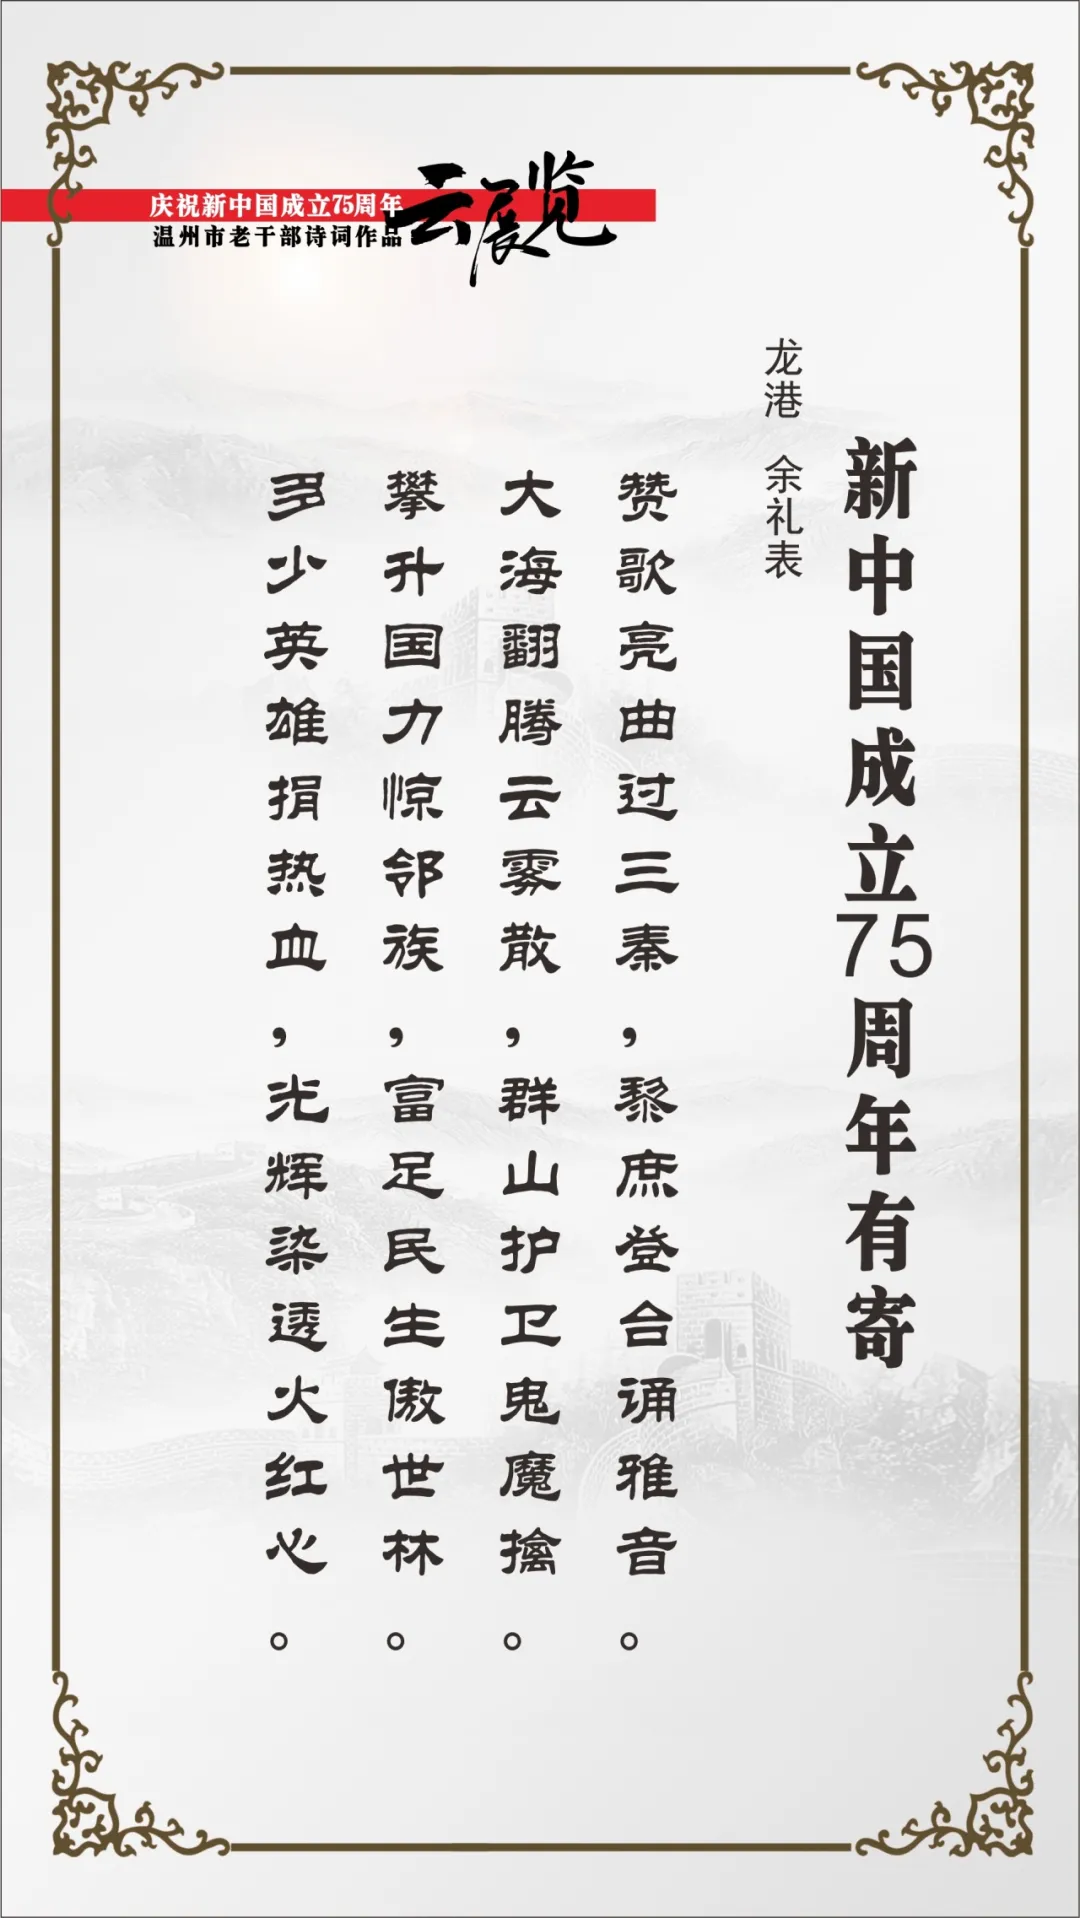 庆祝新中国成立75周年
温州市老干部诗词作品
云展览
新中国成立75周年有寄
龙港 余礼表
赞歌亮曲过三秦，黎庶登台诵雅音。
大海翻腾云雾散，群山护卫鬼魔擒。
攀升国力惊邻族，富足民生傲世林。
多少英雄捐热血，光辉染透火红心。